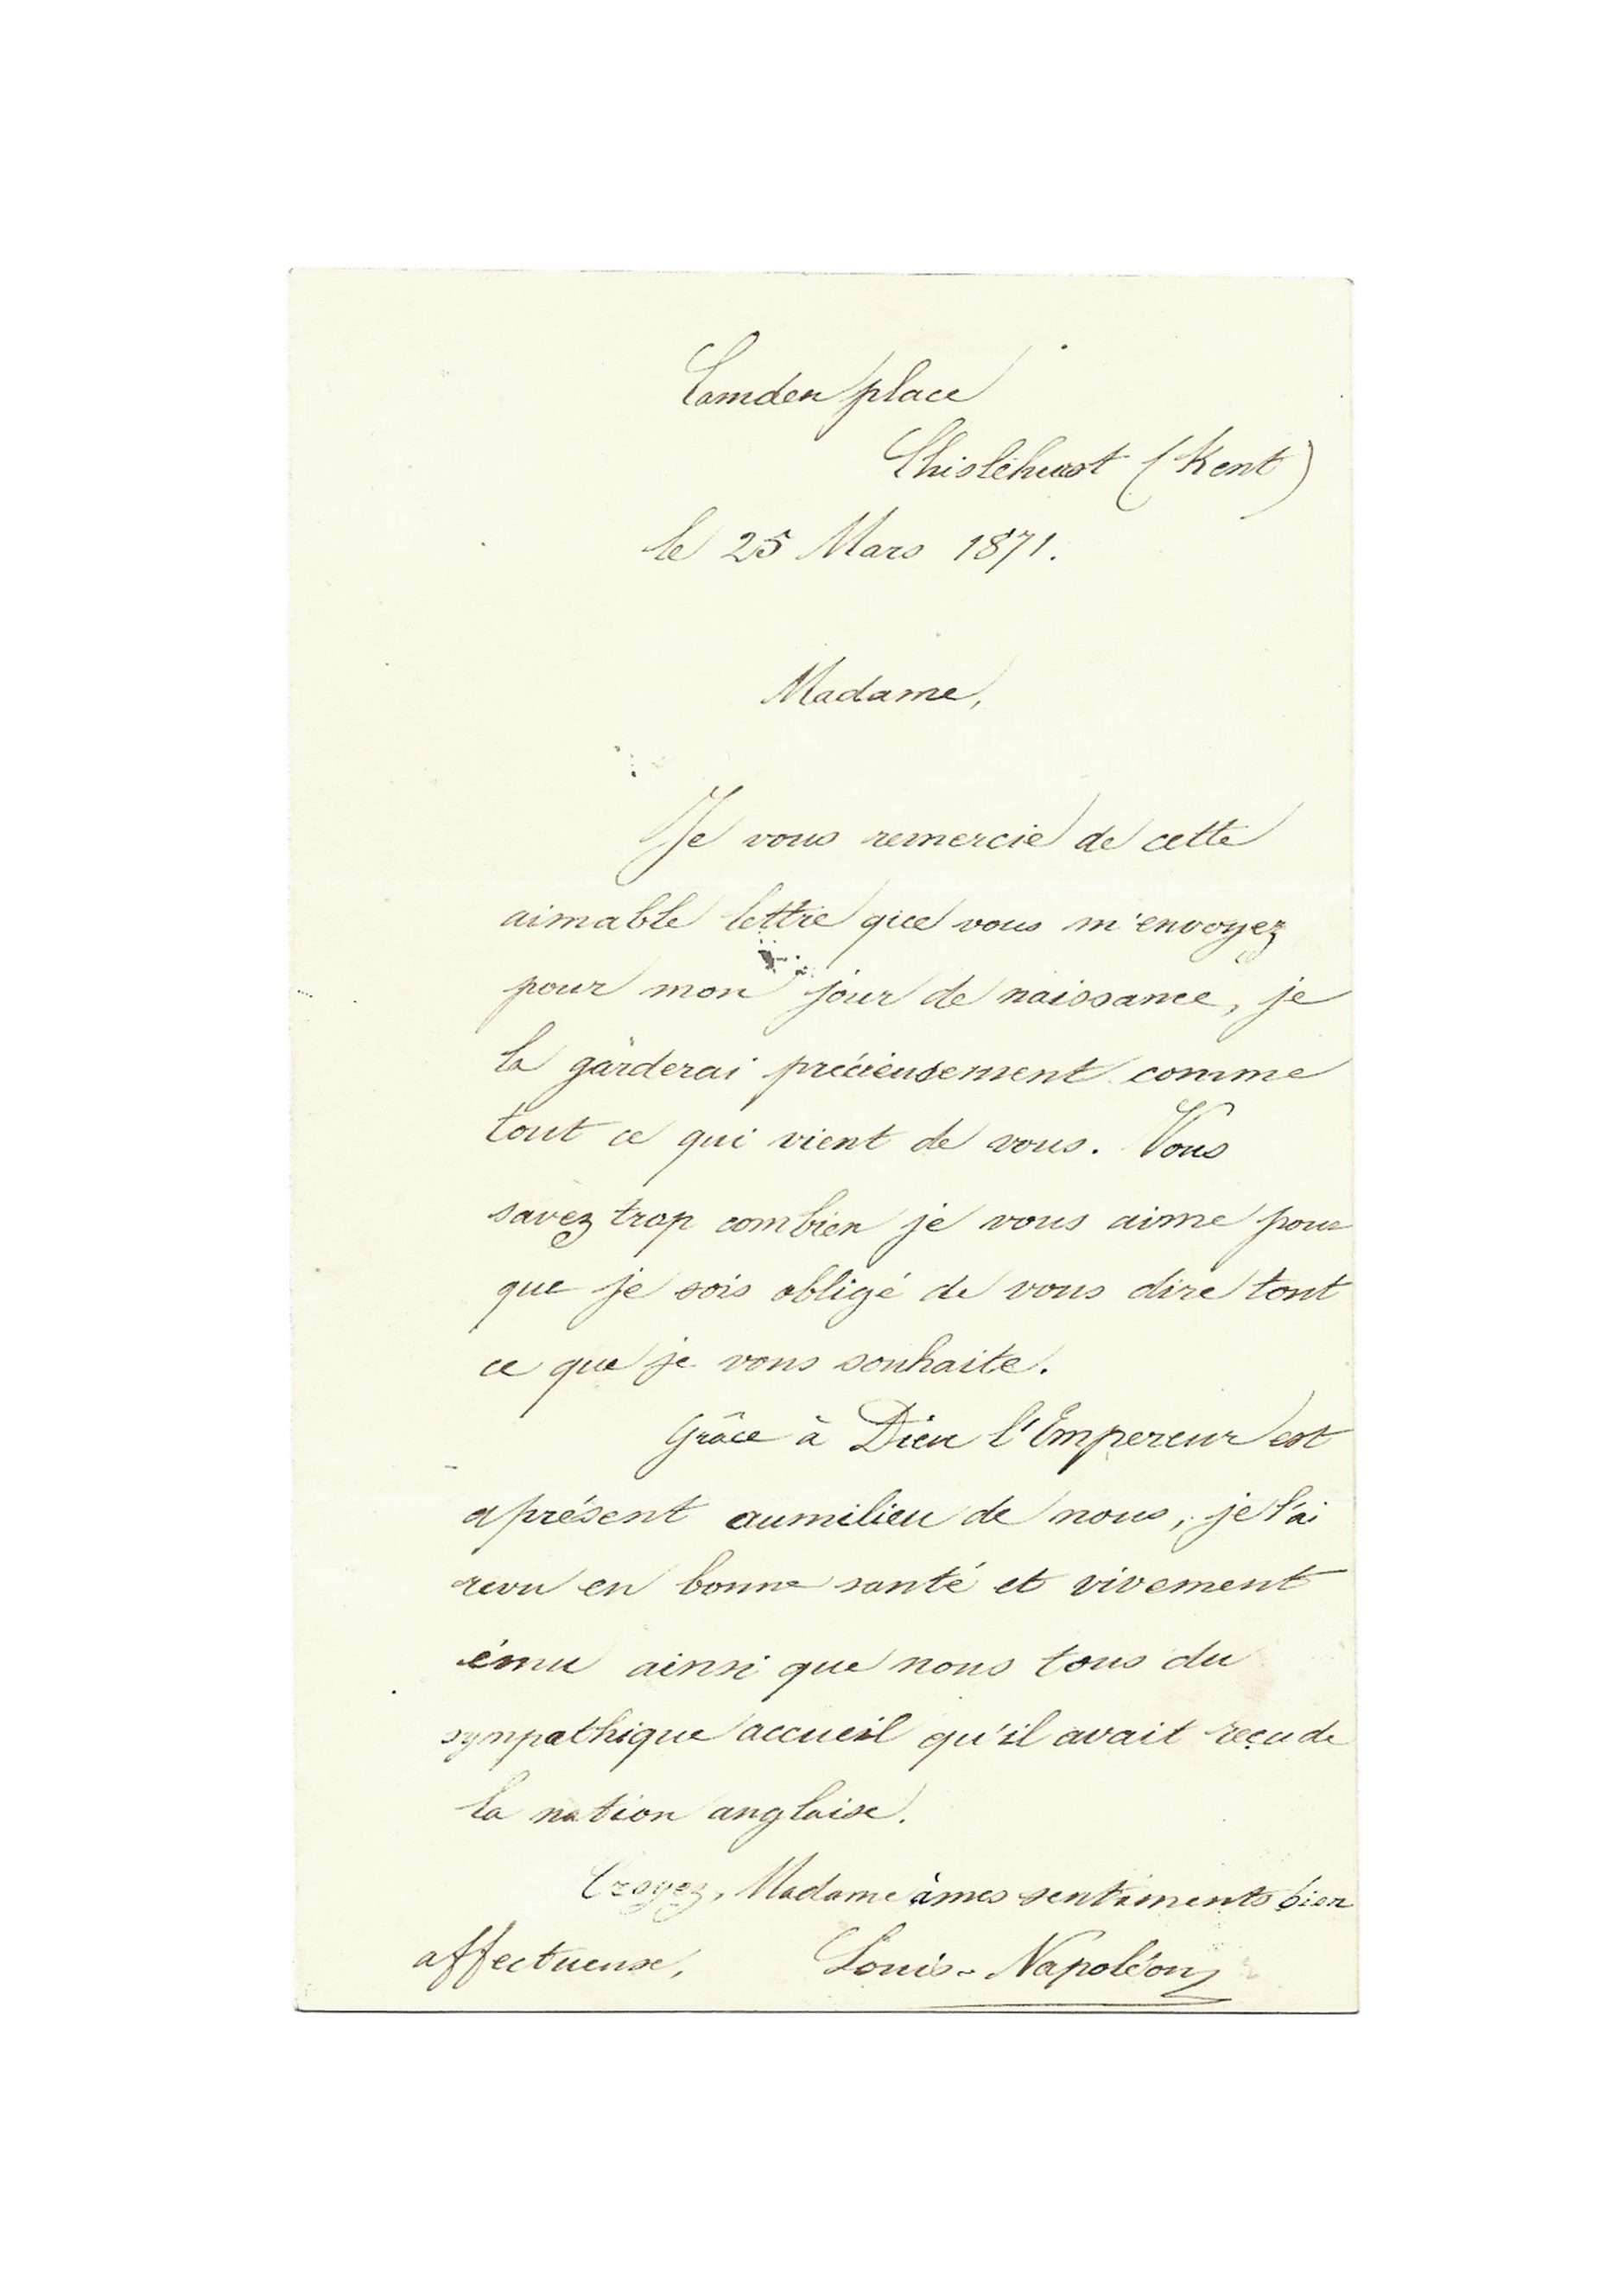 Camden place
Chislehurst (Kent)
le 25 Mars 1871.
Madame,
Je vous remercie de cette
aimable lettre que vous m'envoyez
pour mon jour de naissance, je
la garderai précieusement comme
tout ce qui vient de vous. Vous
savez trop combien je vous aime pour
que je sois obligé de vous dire tout
ce que je vous souhaite.
Grâce à Dieu l'Empereur est
aprésent aumilieu de nous, je l'ai
revu en bonne santé et vivement
ému ainsi que nous tous du
sympathique accueil qu'il avait reçu de
la nation anglaise.
Croyez, Madame à mes sentiments bien
affectueux, Louis-Napoléon